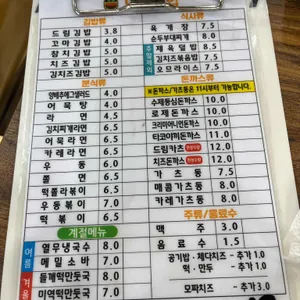 김밥류
드림김밥 3.8
꼬마김밥 4.0
참치김밥 5.0
치즈김밥 5.0
김치즈김밥 5.0
분식류
양배추에그샐러드 4.0
어묵탕 4.0
라면 4.5
김치찌개라면 6.5
어묵라면 6.5
카레라면 6.5
우동 6.5
쫄면 6.5
떡쫄라볶이 6.5
우동볶이 7.0
떡볶이 6.5
계절메뉴
여름
열무냉국수 8.0
메밀소바 7.0
겨울
들깨떡만둣국 8.0
미역떡만둣국 8.0
식사류
육개장 7.5
순두부대찌개 8.0
주말제외
제육덮밥 8.0
김치볶음밥 7.5
오므라이스 7.5
돈까스류
※돈까스/가츠동은 11시부터 가능합니다.
수제등심돈까스 10.0
로제돈까스 10.0
크리미어니언돈까스 10.0
타코야끼돈까스 10.0
드림카츠 12.0
치즈돈까스 12.0
가츠동 7.5
매콤가츠동 8.0
카레가츠동 8.0
주류/음료수
맥주 3.0
음료수 1.5
공기밥·체다치즈 - 추가 1.0
떡·만두 - 추가 1.0
모짜치즈 - 추가 3.0